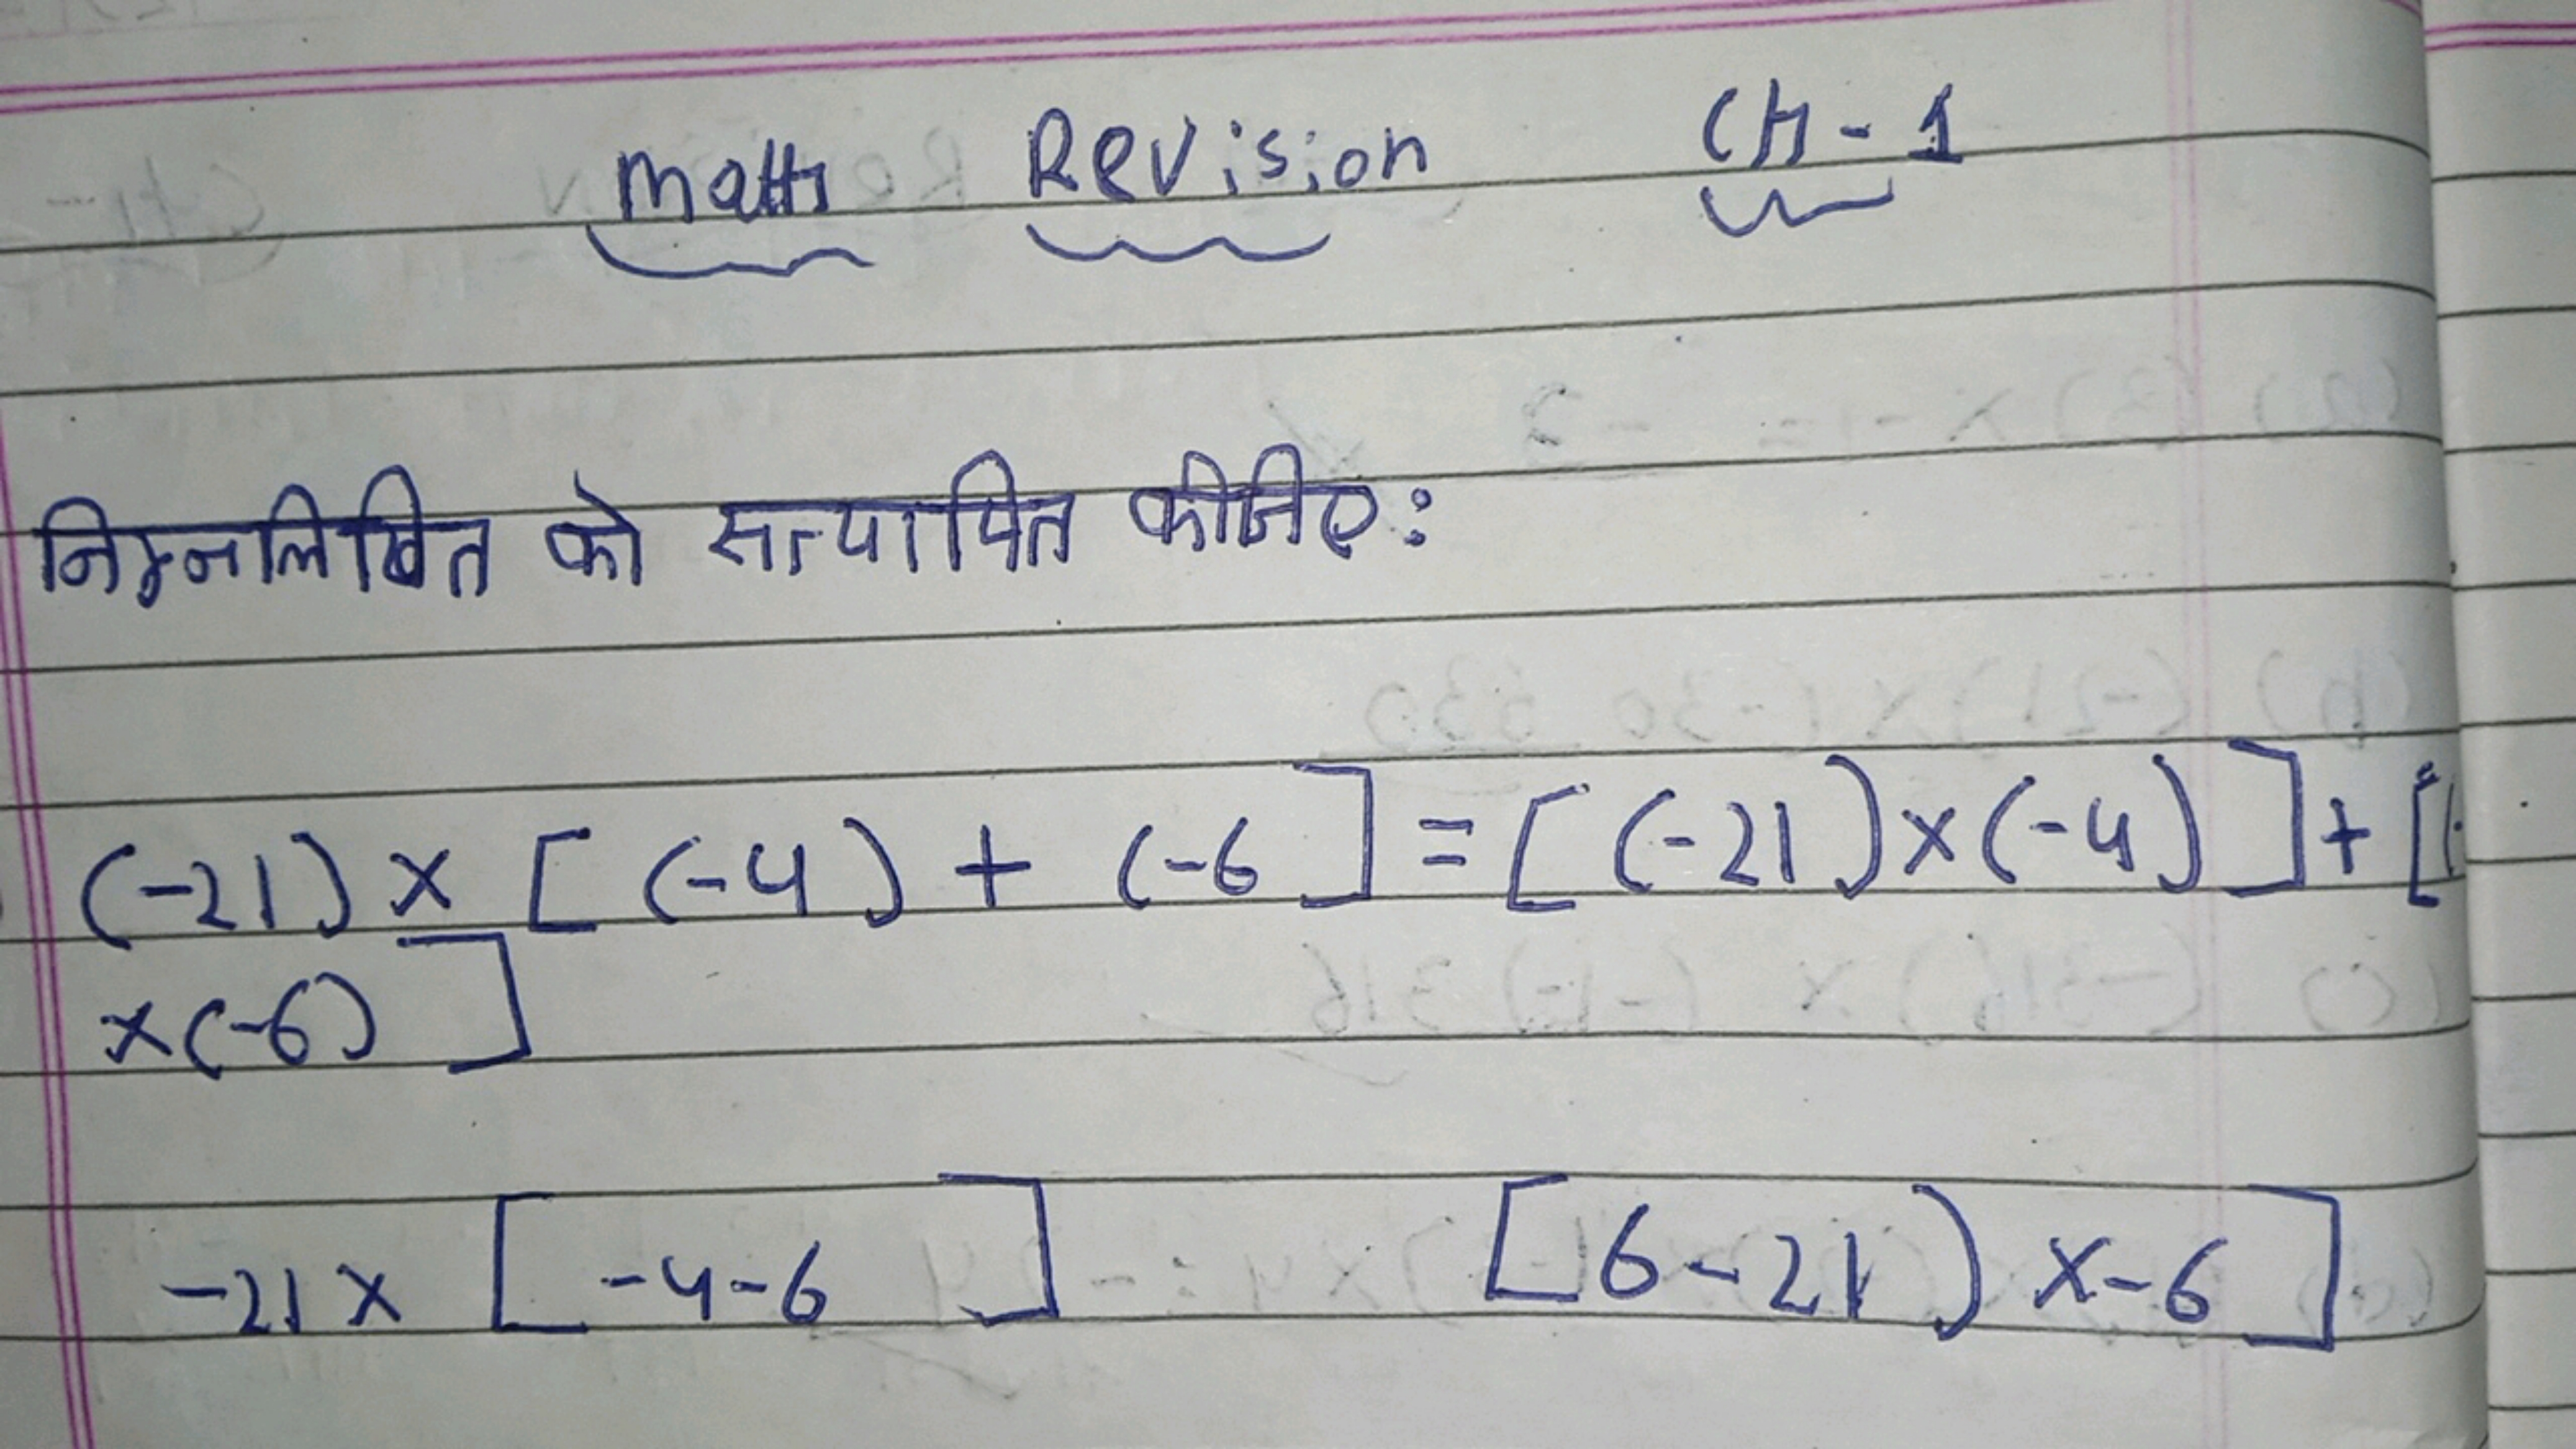 Maths Revision CH-1
निम्नलिखित को सत्यापित कीजिए:
(-21) × [ (-4) + (-6 ] = [ (-21) × (-4) ] + [(-
×(-6) ]
-21 × [ -4-6 ] [6-21) ×-6 ]